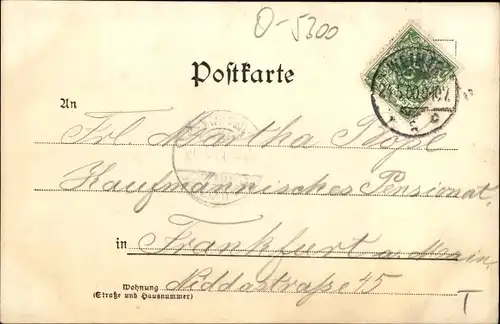 O-5300
Postkarte
An
Frl. Martha
Kaufmännisches Pensionat,
in Frankfurt a. Main,
Wohnung
(Straße und Hausnummer)
Niddastraße 45
T